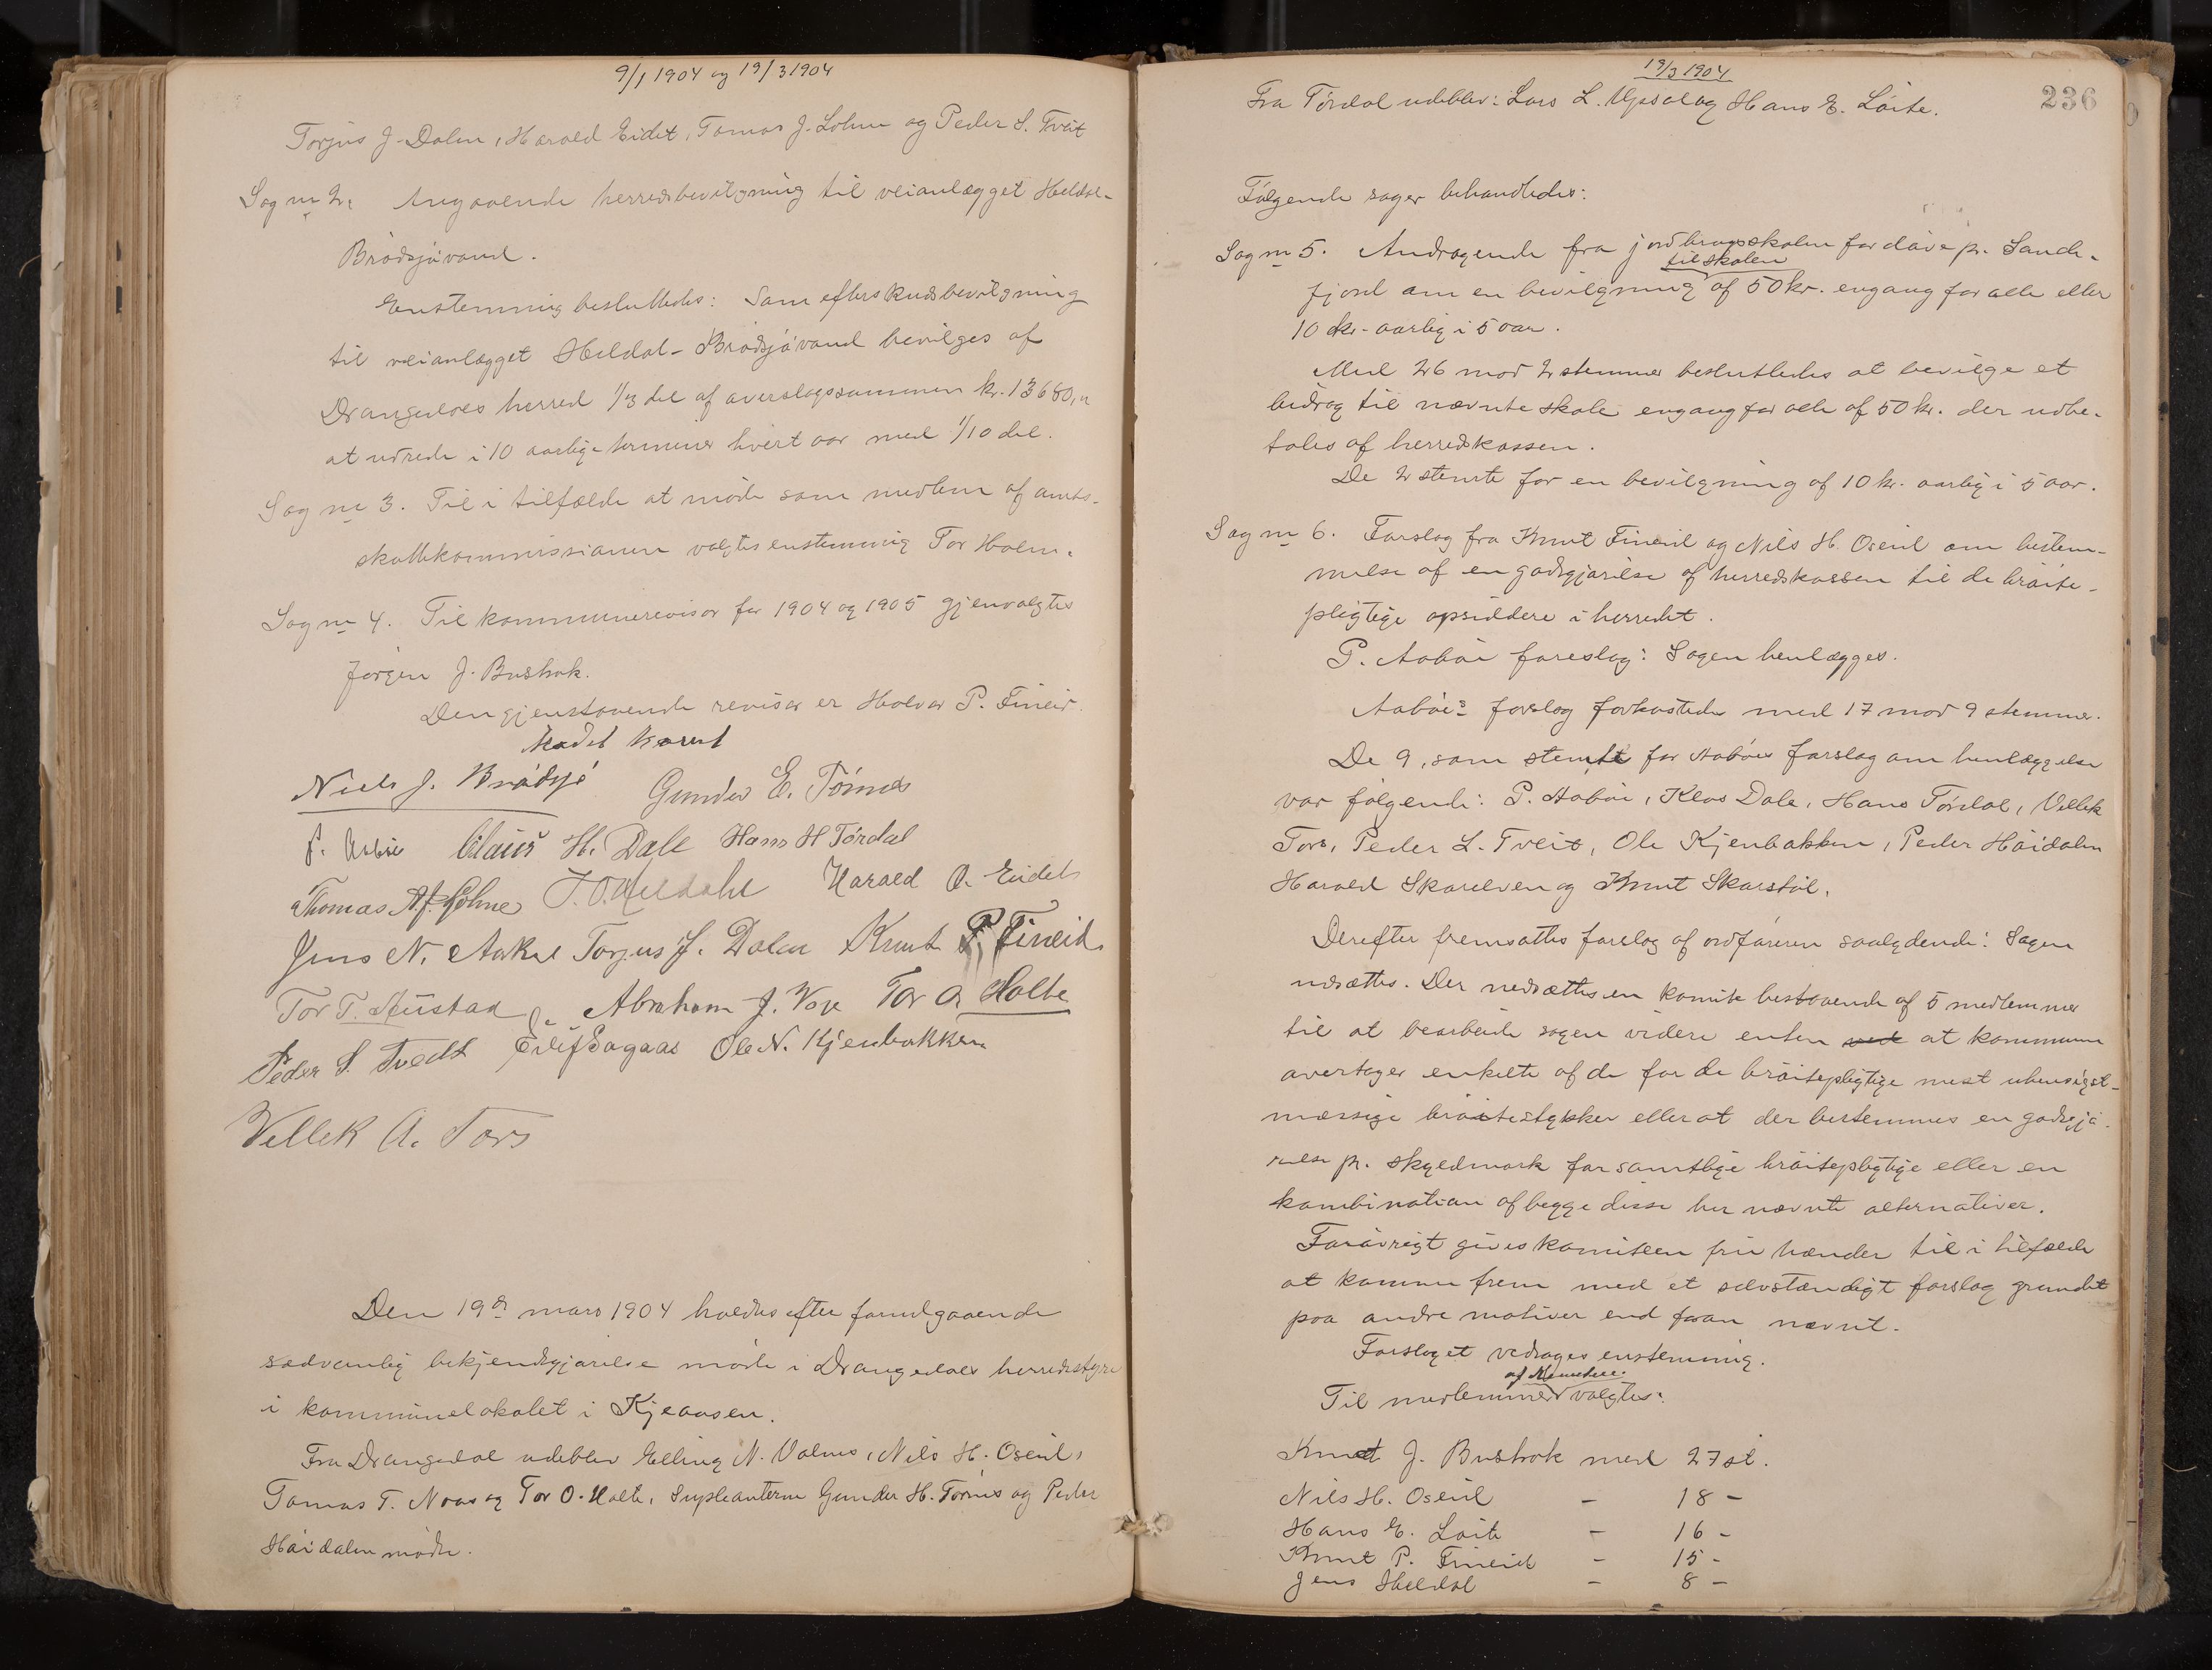 9/1 1904 og 19/3 1904
Torjus J. Dalen, Harald Eidet, Tomas J. Lohne og Peder S. Tveit
Sag nr 2. Angaaende herredsbevilgning til veianlægget Heldal-
Brødsjøvand.
Enstemmig besluttedes: Som efterskudsbevilgning
til veianlægget Heldal-Brødsjøvand bevilges af
Drangedals herred 1/3 del af overslagssummen kr. 13680,00
at udrede i 10 aarlige terminer hvert aar med 1/10 del.
Sag nr 3. Til i tilfælde at møde som medlem af amts-
skattekommissionen valgtes enstemmig Tor Holte.
Sag nr 4. Til kommunerevisor for 1904 og 1905 gjenvalgtes
Jørgen J. Bustrak.
Den gjenstaaende revisor er Halvor P. Fineid.
Mødet hævet
Niels J. Brødsjø Gunder E. Tørnes
P. Aabøe Claus H. Dale Hans H Tørdal
Thomas A.J. Lohne J. O. Heldahl Harald O. Eidet
Jens N. Aakre Torjus J. Dalen Knut P. Fineid.
Tor T. Austad Abraham J. Voje Tor O. Holte
Peder S. Tvedt Eilif Sagaas Ole N. Kjenbakken
Vellek A. Tors
Den 19de mars 1904 holdtes efter forudgaaende
sædvanlig bekjendtgjørelse møde i Drangedals herredsstyre
i kommunelokalet i Kjeaasen.
Fra Drangedal udeblev Elling N. Valnes, Nils H. Oseid,
Tomas T. Naas og Tor O. Holte. Supleanterne Gunder H. Tørnes og Peder
Høidalen mødte.
19/3 1904
236
Fra Tørdal udeblev: Lars L. Upsal og Hans E. Løite.
Følgende sager behandledes:
Sag nr 5. Andragende fra jordbrugsskolen for døve pr. Sande-
til skolen
fjord om en bevilgning af 50 kr. engang for alle eller
10 kr. aarlig i 5 aar.
Med 26 mod 2 stemmer besluttedes at bevilge et
bidrag til nævnte skole engang for alle af 50 kr. der udbe-
tales af herredskassen.
De 2 stemte for en bevilgning af 10 kr. aarlig i 5 aar.
Sag nr 6. Forslag fra Knut Fineid og Nils H. Oseid om bestem-
melse af en godtgjørelse af herredskassen til de brøite-
pligtige opsiddere i herredet.
P. Aabøe foreslog: Sagen henlægges.
Aabøes forslag forkastedes med 17 mod 9 stemmer.
De 9, som stemte for Aabøes forslag om henlæggelse
var følgende: P. Aabøe, Klas Dale, Hans Tørdal, Vellek
Tors, Peder L. Tveit, Ole Kjenbakken, Peder Høidalen
Harald Skarelven og Knut Skarstøl.
Derefter fremsattes forslag af ordføreren saalydende: Sagen
udsættes. Der nedsættes en komite bestaaende af 5 medlemmer
til at bearbeide sagen videre enten ved at kommunen
overtager enkelte af de for de brøitepligtige mest uhensigt-
mæssige brøitestykker eller at der bestemmes en godtgjø-
relse pr. skyldmark for samtlige brøitepligtige eller en
kombination af begge disse her nævnte alternativer.
Forøvrigt gives komiteen frie hænder til i tilfælde
at komme frem med et selvstændigt forslag grundet
paa andre motiver end foran nævnt.
Forslaget vedtages enstemmig.
af Komiteen
Til medlemmer valgtes:
Knut J. Bustrak med 27 st.
Nils H. Oseid - 18 -
Hans E. Løite - 16 -
Knut P. Fineid - 15 -
Jens Heldal - 8 -